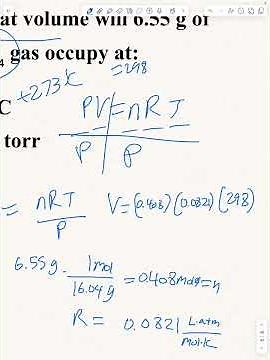 at volume will 6.55 g of
4 gas occupy at:
+273k =298
C
PV=nRT
torr
P P
= nRT/P V=(0.408)(0.0821)(298)
6.55g · 1mol/16.04g =0.408mol=n
R= 0.0821 L·atm/mol·K